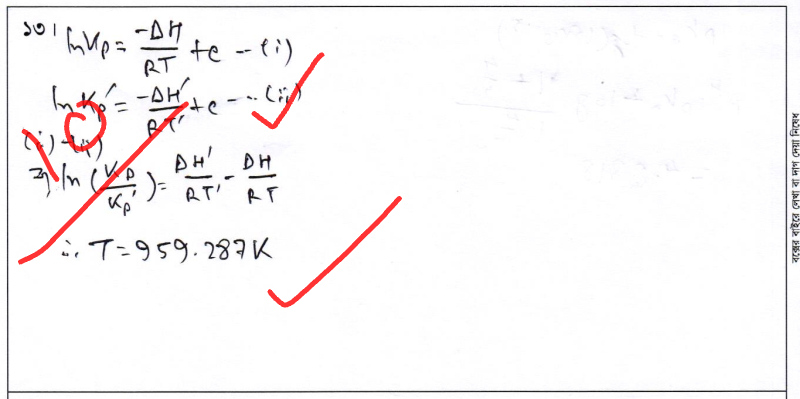 ১৩। lnKp = -ΔH/RT + c -- (i)
lnKp' = -ΔH'/RT' + c --- (ii)
(i)-(ii)
⇒ ln(Kp/Kp') = ΔH'/RT' - ΔH/RT
∴ T = 959.287K
বক্সের বাইরে লেখা বা দাগ দেয়া নিষেধ